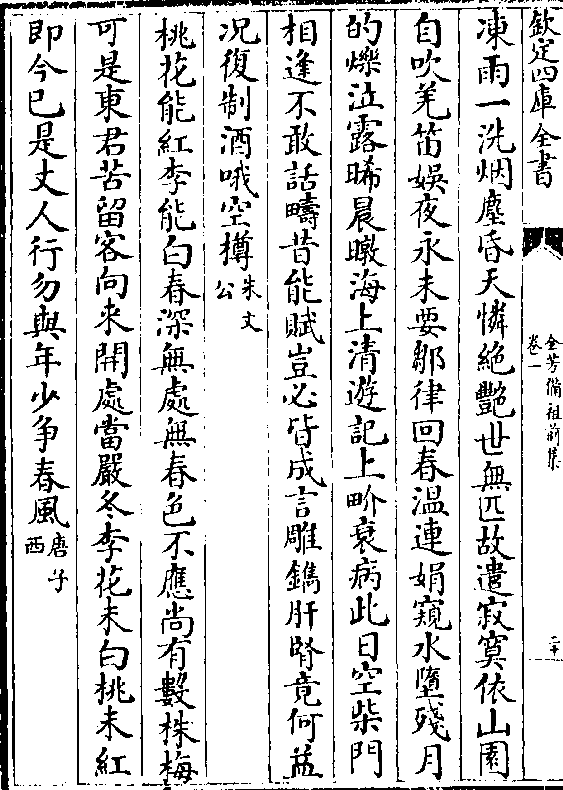 欽定四庫全書
全芳備祖前集
卷一
二十
凍雨一洗烟塵昏天憐絶艷世無匹故遣寂寞依山園
自吹羌笛娛夜永未要鄒律回春温連娟窺水墮殘月
的爍泣露晞晨暾海上清遊記上畍衰病此日空柴門
相逢不敢話疇昔能賦豈必皆成言雕鐫肝腎竟何益
况復制酒哦空樽朱文公
桃花能紅李能白春深無處無春色不應尚有數株梅
可是東君苦留客向來開處當嚴冬李花未白桃未紅
即今已是丈人行勿與年少争春風唐子西